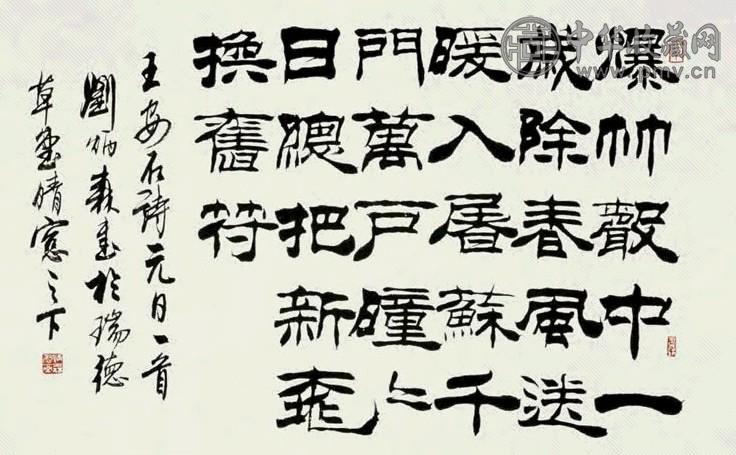 爆竹聲中一
歲除春風送
暖入屠蘇千
門萬戶曈〻
日總把新桃
換舊符
王安石詩元日一首
劉炳森書於瑞德
草堂晴窗之下
中华收藏网